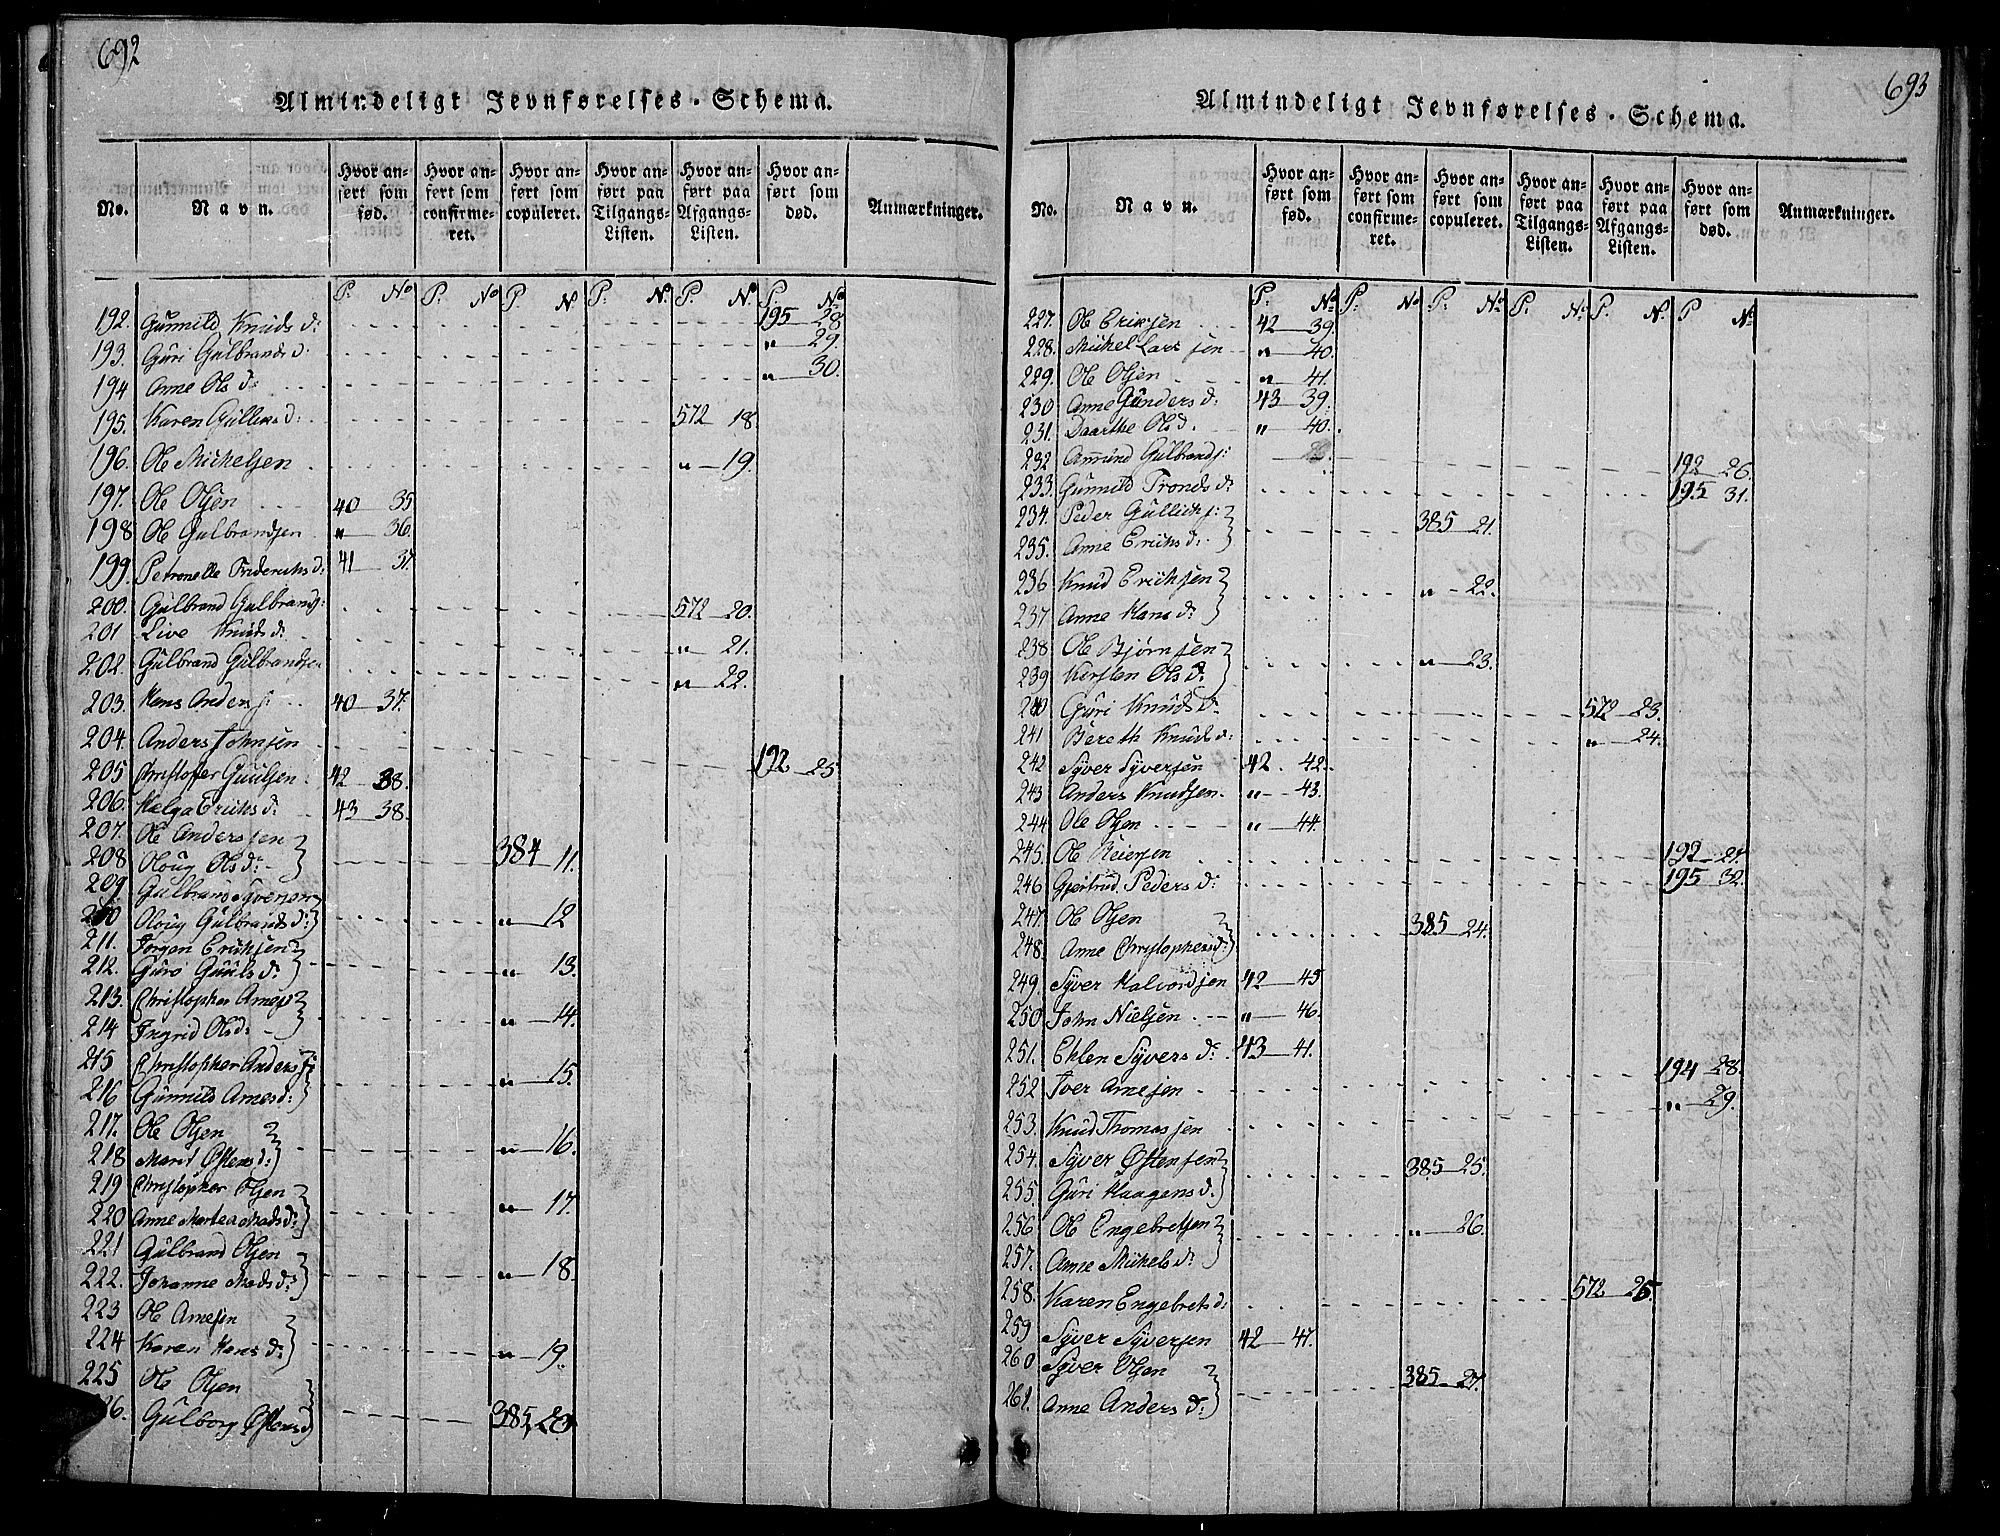 692
Almindeligt Jevnførelses-Schema.
No. Navn. Hvor anført som fød. Hvor anført som confirmeret. Hvor anført som copuleret. Hvor anført paa Tilgangs-Listen. Hvor anført paa Afgangs-Listen. Hvor anført som død. Anmærkninger.
P. No P. No P N P. N. P. N. P. No
192. Gunnild Knuds d: 195 28
193 Guri Gulbrands d: " 29.
194 Anne Ols d: " 30.
195. Karen Gulliks d: 572 18.
196. Ole Michelsen " 19.
197. Ole Olsen 40 35
198 Ole Gulbrandsen " 36.
199. Petronelle Friderichs d: 41 37.
200. Gulbrand Gulbrands: 572 20.
201 Live Knuds d: " 21.
202. Gulbrand Gulbrandsen " 22.
203. Hans Anders s: 40 37.
204. Anders Johnsen 192 25
205 Christoffer Guulsen 42 38.
206. Helga Erichs d: 43 38.
207. Ole Anderssen
208 Oloug Ols d: 384 11.
209. Gulbrand Syversen
210 Oloug Gulbrands d: " 12
211. Jorgen Erichsen
212. Guro Guuls d: " 13.
213. Christopher Arnes:
214 Ingrid Ols d: " 14.
215 Christopher Anders s:
216 Gunnild Arnes d: " 15.
217. Ole Olsen
218 Marit Østens d: " 16.
219 Christopher Olsen
220 Anne Martea Mads d: " 17.
221 Gulbrand Olsen
222. Johanne Mads d: " 18.
223 Ole Arnesen
224 Karen Hans d: " 19.
225 Ole Olsen
26. Gulborg Østens d 385, 20
693
Almindeligt Jevnførelses-Schema.
No. Navn. Hvor anført som fød. Hvor anført som confirmeret. Hvor anført som copuleret. Hvor anført paa Tilgangs-Listen. Hvor anført paa Afgangs-Listen. Hvor anført som død. Anmærkninger.
P. No P. No P. No P. No P. N. P No
227. Ole Eriksen 42 39.
228. Michel Lars sen " 40.
229. Ole Olsen " 41.
230 Anne Gunders d: 43 39.
231. Daarthe Ols d. " 40.
232 Amund Gulbrands: 192 26.
233. Gunnild Tronds d: 195 31.
234. Peder Gullicks:
235. Anne Erichs d: 385 21.
236 Knud Erichsen
237 Anne Hans d: " 22.
238 Ole Bjørnsen
239 Kirsten Ols d: " 23.
240 Guri Knuds d: 572 23.
241 Bereth Knuds d: " 24.
242 Syver Syversen 42. 42.
243 Anders Knudsen " 43.
244 Ole Olsen " 44.
245. Ole Reiersen 192 27.
246 Gjertrud Peders d: 195 32.
247. Ole Olsen
248. Anne Christophers d: 385 24.
249. Syver Halvordsen 42 45
250 John Nielsen " 46.
251. Ehlen Syvers d: 43 41.
252 Iver Arnesen 194 28.
253. Knud Thomassen " 29.
254. Syver Østensen
255. Guri Haagens d. 385 25.
256 Ole Engebretsen
257. Anne Michels d: " 26.
258. Karen Engebrets d: 572 25.
259 Syver Syversen 42 47.
260 Syver Olsen
261. Anne Anders d: 385 27.